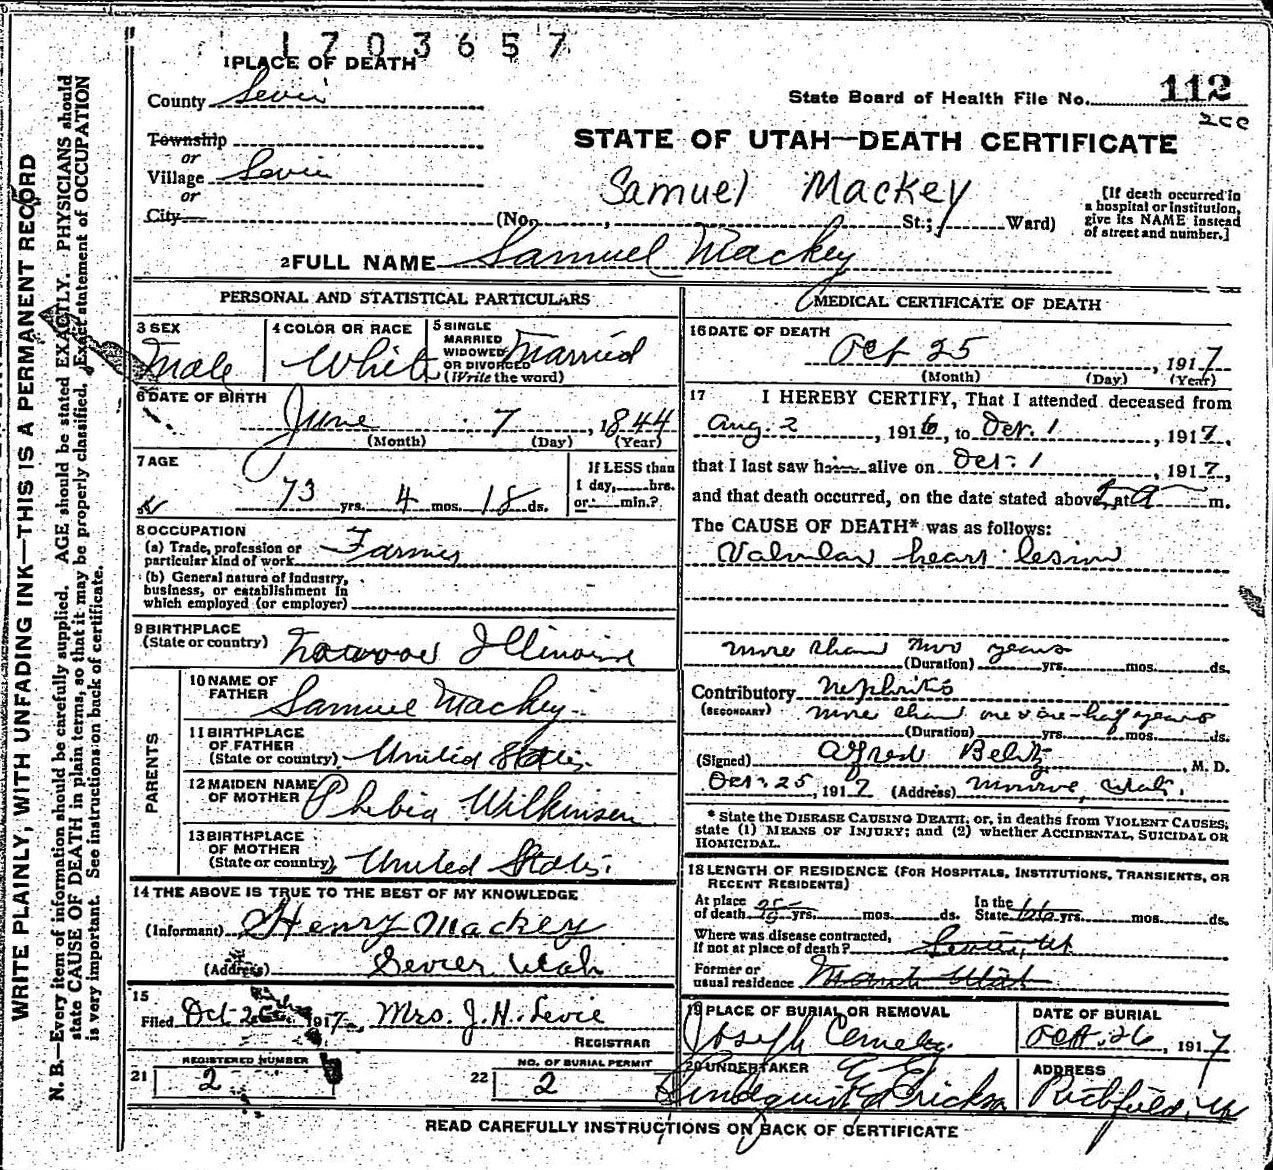 1703657
1 PLACE OF DEATH
112
State Board of Health File No.
County Sevier
STATE OF UTAH—DEATH CERTIFICATE
Township
or
Village Sevier
or
City
Samuel Mackey
(No. , St.; Ward)
[If death occurred in
a hospital or institution,
give its NAME instead
of street and number.]
2 FULL NAME Samuel Mackey
PERSONAL AND STATISTICAL PARTICULARS
3 SEX Male
4 COLOR OR RACE White
5 SINGLE
MARRIED
WIDOWED
OR DIVORCED
(Write the word) Married
6 DATE OF BIRTH
June 7, 1844
(Month) (Day) (Year)
7 AGE
73 yrs. 4 mos. 18 ds.
If LESS than
1 day, hrs.
or min.?
8 OCCUPATION
(a) Trade, profession or
particular kind of work Farmer
(b) General nature of industry,
business, or establishment in
which employed (or employer)
9 BIRTHPLACE
(State or country) Illinois
PARENTS
10 NAME OF
FATHER Samuel Mackey
11 BIRTHPLACE
OF FATHER
(State or country) United States
12 MAIDEN NAME
OF MOTHER Phebia Wilkinson
13 BIRTHPLACE
OF MOTHER
(State or country) United States
14 THE ABOVE IS TRUE TO THE BEST OF MY KNOWLEDGE
(Informant) Henry Mackey
(Address) Sevier Utah
15
Filed Oct 1917 Mrs. J. H. Levie
REGISTRAR
REGISTERED NUMBER
21 2
NO. OF BURIAL PERMIT
22 2
MEDICAL CERTIFICATE OF DEATH
16 DATE OF DEATH
Oct 25, 1917
(Month) (Day) (Year)
17 I HEREBY CERTIFY, That I attended deceased from
Aug. 2, 1916, to Oct. 1, 1917,
that I last saw him alive on Oct. 1, 1917,
and that death occurred, on the date stated above, at m.
The CAUSE OF DEATH* was as follows:
Valvular heart lesion
more than two years
(Duration) yrs. mos. ds.
Contributory Nephritis
(SECONDARY) more than one & one-half years
(Duration) yrs. mos. ds.
(Signed) Alfred Beltz, M. D.
Oct. 25, 1917 (Address) Monroe, Utah.
* State the DISEASE CAUSING DEATH, or, in deaths from VIOLENT CAUSES,
state (1) MEANS OF INJURY; and (2) whether ACCIDENTAL, SUICIDAL OR
HOMICIDAL.
18 LENGTH OF RESIDENCE (FOR HOSPITALS, INSTITUTIONS, TRANSIENTS, OR
RECENT RESIDENTS)
At place
of death yrs. mos. ds. In the
State 66 yrs. mos. ds.
Where was disease contracted,
If not at place of death? Sevier, Ut
Former or
usual residence Utah
19 PLACE OF BURIAL OR REMOVAL
Joseph Cemetery.
DATE OF BURIAL
Oct. 26, 1917
20 UNDERTAKER
ADDRESS
Richfield, Ut
READ CAREFULLY INSTRUCTIONS ON BACK OF CERTIFICATE
WRITE PLAINLY, WITH UNFADING INK—THIS IS A PERMANENT RECORD
N. B.—Every item of information should be carefully supplied. AGE should be stated EXACTLY. PHYSICIANS should
state CAUSE OF DEATH in plain terms, so that it may be properly classified. Exact statement of OCCUPATION
is very important. See instructions on back of certificate.